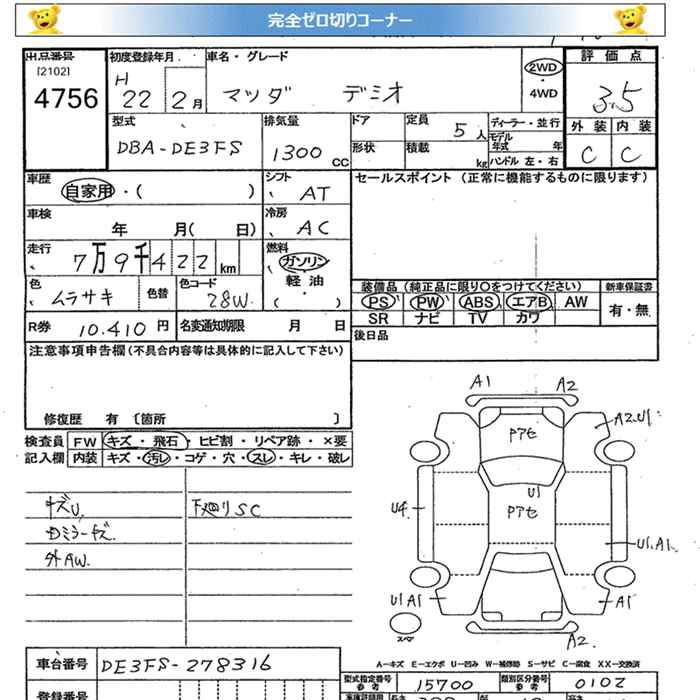 完全ゼロ切りコーナー
出品番号 初度登録年月 車名・グレード 2WD 評価点
[2102] H
4756 22 2月 マツダ デミオ ・ 4WD 3.5
型式 排気量 ドア 定員 5人 ディーラー・並行 外装 内装
DBA-DE3FS 1300cc 形状 積載 kg モデル年式 年 C C
ハンドル 左・右
車歴 シフト セールスポイント (正常に機能するものに限ります)
自家用・( ) AT
車検 冷房
年 月( 日) AC
走行 燃料
7万9千422km ガソリン
軽油
色 色替 色コード ( ) 装備品 (純正品に限り○をつけてください) 新車保証書
ムラサキ 28W PS PW ABS エアB AW 有・無
SR ナビ TV カワ
R券 10.410円 名変通知期限 月 日 後日品
注意事項申告欄 (不具合内容等は具体的に記入して下さい)
修復歴 有 〔箇所 〕
検査員 FW キズ・飛石・ヒビ割・リペア跡・×要
記入欄 内装 キズ・汚レ・コゲ・穴・スレ・キレ・破レ
キズU. 下廻りSC
外AW.
A1 A2
Pアセ A2.U1
U1
U4 Pアセ
U1.A1
U1 A1 A1
スペア A2
A-キズ E-エクボ U-凹み W-補修跡 S-サビ C-腐食 XX-交換済
車台番号 DE3FS-278316 型式指定番号 参考 15700 類別区分番号 参考 0102
登録番号